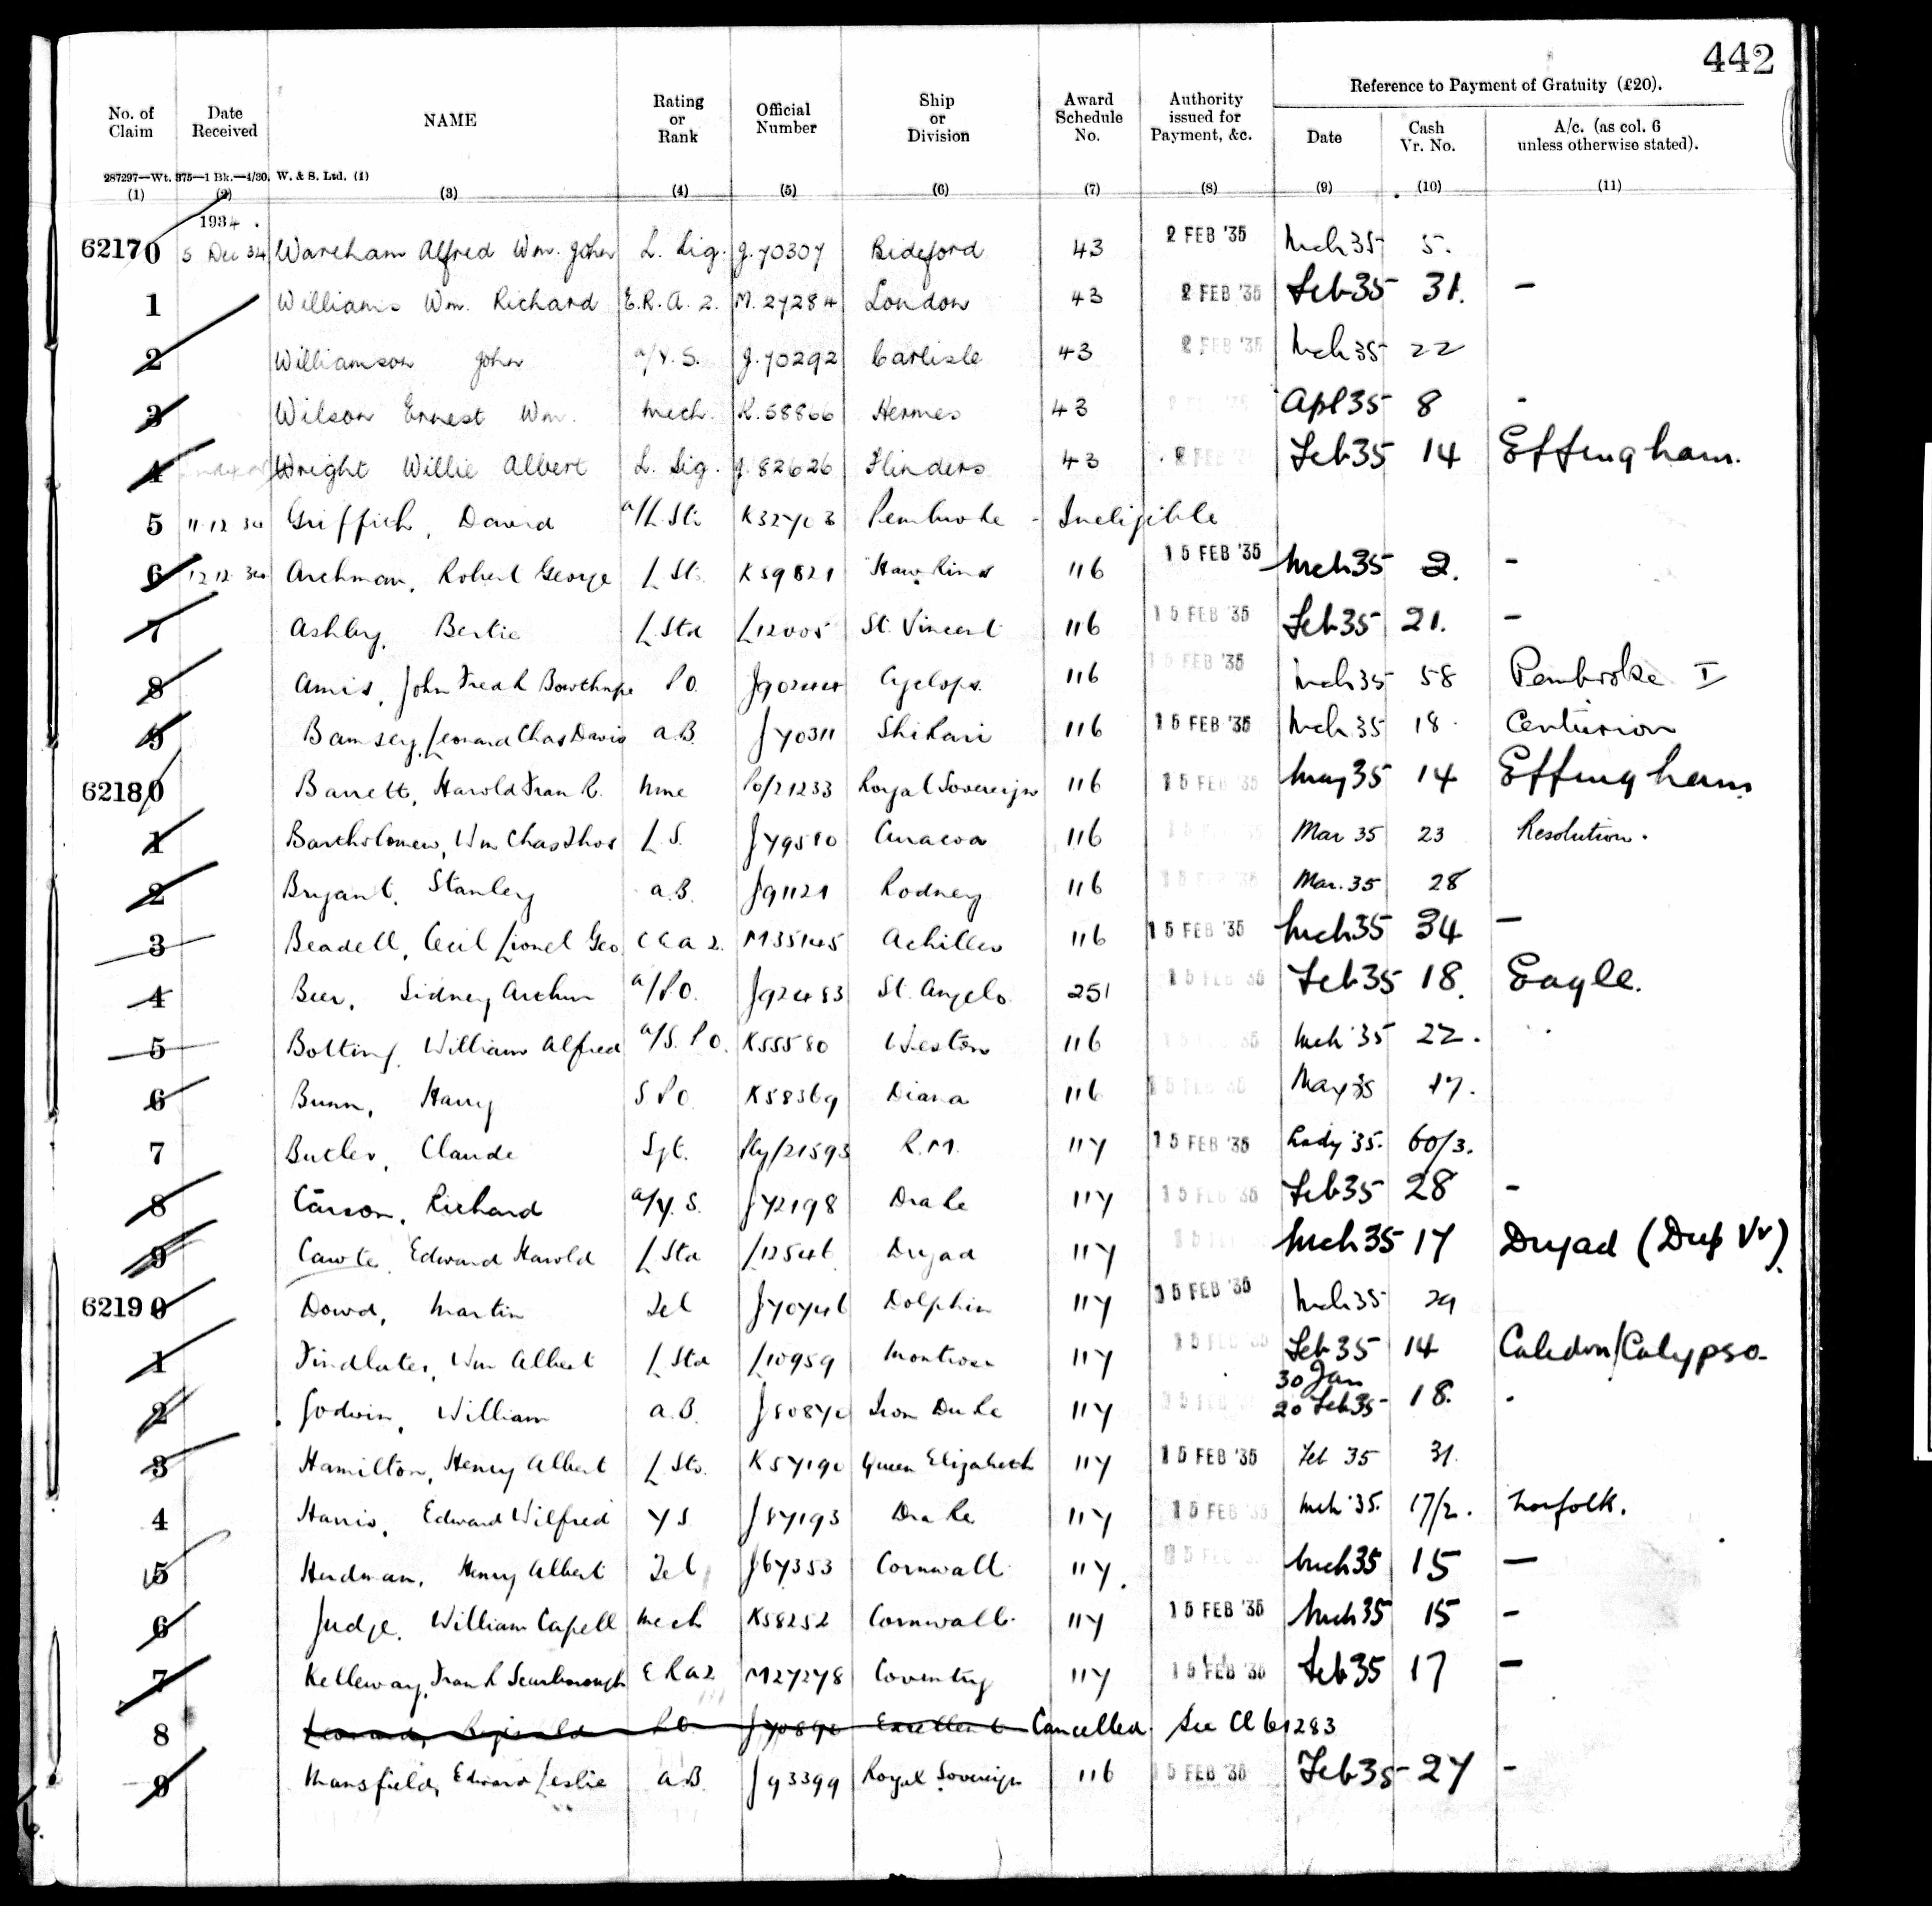 442
Reference to Payment of Gratuity (£20).
No. of Claim Date Received NAME Rating or Rank Official Number Ship or Division Award Schedule No. Authority issued for Payment, &c. Date Cash Vr. No. A/c. (as col. 6 unless otherwise stated).
287297—Wt. 375—1 Bk.—4/30. W. & S. Ltd. (1)
(1) (2) (3) (4) (5) (6) (7) (8) (9) (10) (11)
1934.
62170 5 Dec 34 Wareham Alfred Wm. John L. Sig. J.70307 Bideford 43 2 FEB '35 Mch 35 5.
1 Williams Wm. Richard E.R.A. 2. M.27284 London 43 2 FEB '35 Feb 35 31. —
2 Williamson John a/Y.S. J.70292 Carlisle 43 2 FEB '35 Mch 35 22
3 Wilson Ernest Wm. Mech. K.58866 Hermes 43 2 FEB '35 Apl 35 8 -
4 Wright Willie Albert L. Sig. J.82626 Flinders 43 2 FEB Feb 35 14 Effingham.
5 11.12.34 Griffith, David a/L.Sto K32703 Pembroke - Ineligible
6 12.12.34 Archman, Robert George L.St. K59821 Hawkins 116 15 FEB '35 Mch 35 2. -
7 Ashby, Bertie L.Std L12005 St. Vincent 116 15 FEB '35 Feb 35 21. -
8 Amis, John Fredk Bowthorpe P.O. Cyclops. 116 15 FEB '35 Mch 35 58 Pembroke I
9 Bamsey, Leonard Chas Davis a.B. J70311 Shikari 116 15 FEB '35 Mch 35 18. Centurion
62180 Barrett, Harold Frank R. Mne Po/21233 Royal Sovereign 116 15 FEB '35 May 35 14 Effingham
1 Bartholomew, Wm Chas Thos L.S. J79510 Curacoa 116 15 FEB '35 Mar 35 23 Resolution.
2 Bryant, Stanley a.B. J91121 Rodney 116 15 FEB '35 Mar. 35 28
3 Beadell, Cecil Lionel Geo. M35145 Achilles 116 15 FEB '35 Mch 35 34 —
4 Beer, Sidney Arthur a/P.O. J92483 St. Angelo 251 15 FEB 35 Feb 35 18. Eagle.
5 Botting, William Alfred a/S.P.O. K55580 Weston 116 15 FEB 35 Mch '35 22.
6 Bunn, Harry S.P.O. K58369 Diana 116 15 FEB 35 May 35 17.
7 Butler, Claude Sgt. Ply/21593 R.M. 117 15 FEB '35 Lady '35. 60/3.
8 Carson, Richard a/Y.S. J72198 Drake 117 15 FEB '35 Feb 35 28 -
9 Cawte, Edward Harold L.Std L12546 Dryad 117 15 FEB Mch 35 17 Dryad (Dup Vr)
62190 Dowd, Martin Tel J70746 Dolphin 117 15 FEB '35 Mch 35 29
1 Findlater, Wm Albert L.Std L10959 Montrose 117 15 FEB '35 Feb 35 14 Caledon/Calypso
30 Jan
2 Godwin, William a.B. Iron Duke 117 15 FEB 20 Feb 35 18. -
3 Hamilton, Henry Albert L.Sto. K57190 Queen Elizabeth 117 15 FEB '35 Feb 35 31.
4 Harris, Edward Wilfred Y.S J87193 Drake 117 15 FEB '35 Mch '35. 17/2. Norfolk.
5 Herdman, Henry Albert Tel J67353 Cornwall 117. 15 FEB Mch 35 15 —
6 Judge, William Capell Mech K58252 Cornwall 117 15 FEB '35 Mch 35 15 -
7 Kelleway, Frank Scarborough E.R.a 2 M27278 Coventry 117 15 FEB '35 Feb 35 17 -
8 Leonard, Reginald P.O. Excellent Cancelled. See Cl 61283
9 Mansfield, Edward Leslie a.B. J93399 Royal Sovereign 116 15 FEB '35 Feb 35 27 -